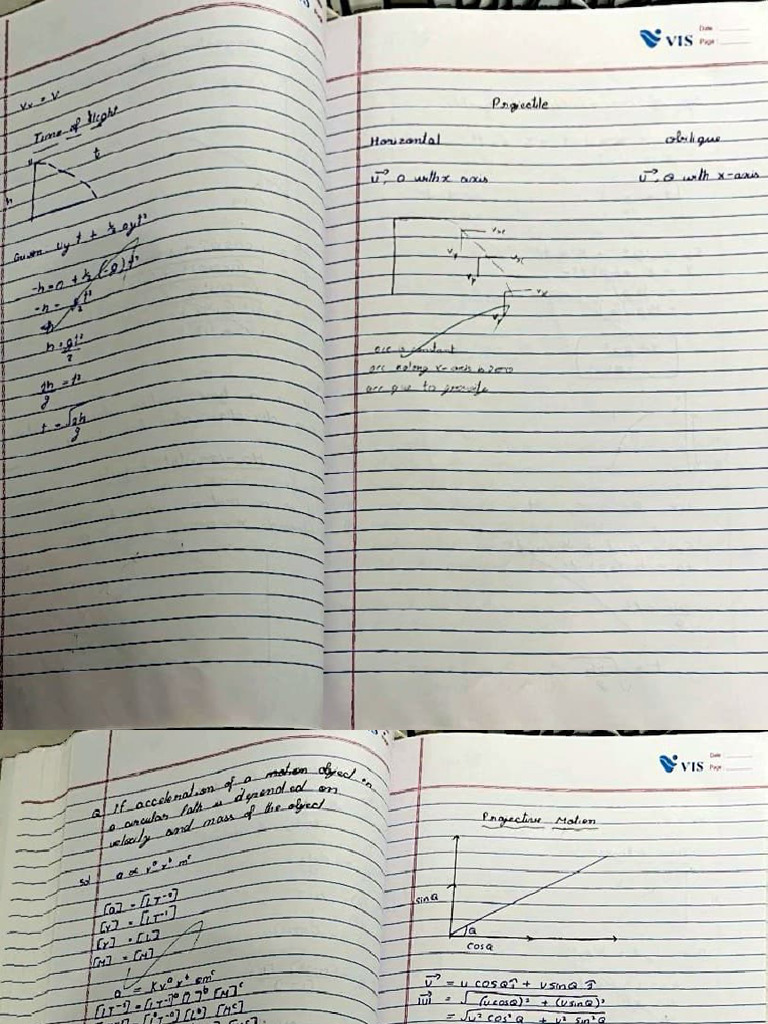 Vx = V
Time of flight
t
h
uy t + ½ ayt²
-h = 0 + ½ (-g) t²
h = gt²/2
2h/g = t²
t = √2h/g
VIS
Date :
Page :
Projectile
Horizontal oblique
u⃗, 0 with x axis u⃗, θ with x-axis
Vx
Vy
Vx
Vy
Vx
Vy
acc is constant
acc along x-axis is zero
acc due to gravity
Q If acceleration of a motion object in
a circular path is depended on
velocity and mass of the object
Sol a ∝ vᵃ rᵇ mᶜ
[a] = [LT⁻²]
[V] = [LT⁻¹]
[r] = [L]
[M] = [M]
a = K vᵃ rᵇ mᶜ
[LT⁻²] = [LT⁻¹]ᵃ [L]ᵇ [M]ᶜ
VIS
Date :
Page :
Projective Motion
sinθ
θ
cosθ
= u cosθ î + u sinθ ĵ
= √(ucosθ)² + (usinθ)²
= √u² cos²θ + u² sin²θ